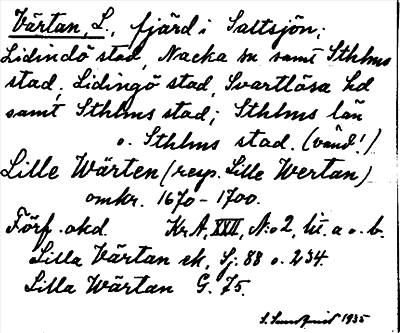 Värtan, L., fjärd i Saltsjön;
Lidingö stad, Nacka sn samt Sthlms
stad; Lidingö stad, Svartlösa hd
samt Sthlms stad; Sthlms län
o. Sthlms stad. (vänd!)
Lille Wärten (resp. Lille Wertan)
omkr. 1670-1700.
Förf. okd. Kr A, XXII, N:o 2, lit. a o. b.
Lilla Värtan ek, Sj. 88 o. 234.
Lilla Wärtan G. 75.
S. Sundqvist 1935